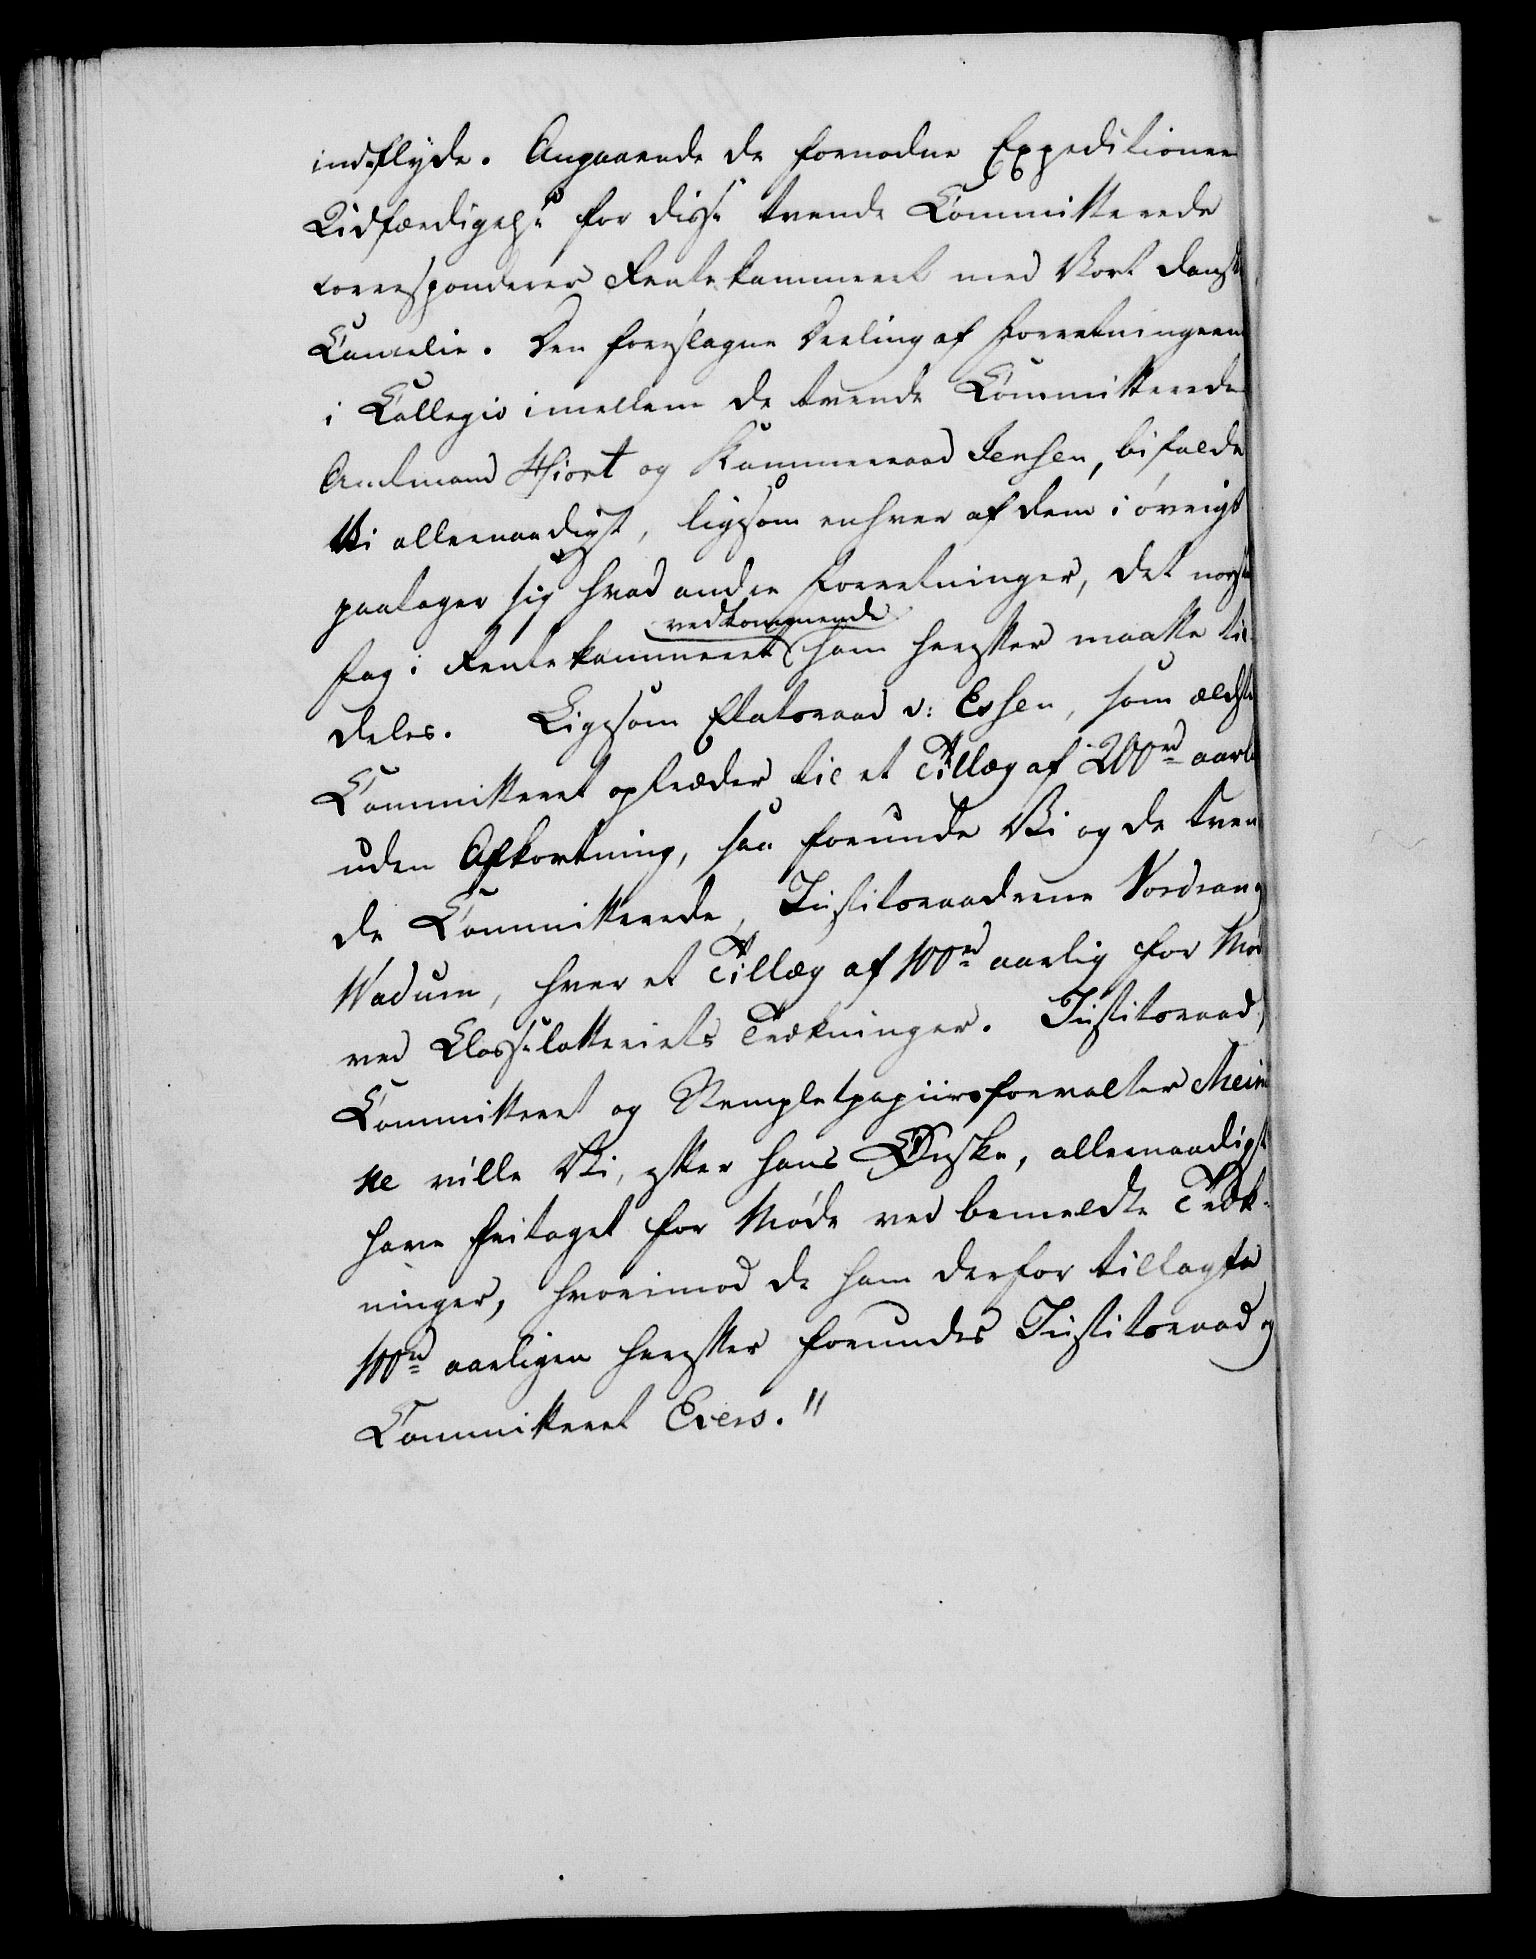 indflyde. Angaaende de fornødne Expeditioner
Udfærdigelse for disse tvende Committerede
corresponderer Rentekammeret med Vort danske
Cancelie. Den foreslagne Deeling af Forretningerne
i Collegio imellem de tvende Committerede
Amtmand Hiort og Kammerraad Jensen, bifalde
Vi allernaadigst, ligesom enhver af dem i øvrigt
paatager sig hvad andre Forretninger, det norske
Fag i Rentekammeret vedkommende ham herefter maatte til-
deles. Ligesom Etatsraad v: Essen, som ældste
Committeret opræder til et Tillæg af 200rd aarlig
uden Afkortning, saa forunde Vi og de tven-
de Committerede, Justitsraaderne Nordrang
Wadum, hver et Tillæg af 100rd aarlig for Møde
ved Classelotteriets Trækninger. Justitsraad,
Committeret og Stempletpapiirsforvalter Mein
ke ville Vi, efter hans Ønske, allernaadigst
have fritaget for Møde ved bemeldte Træk-
ninger, hvorimod de ham derfor tillagte
100rd aarligen herefter forundes Justitsraad og
Committeret Evers."